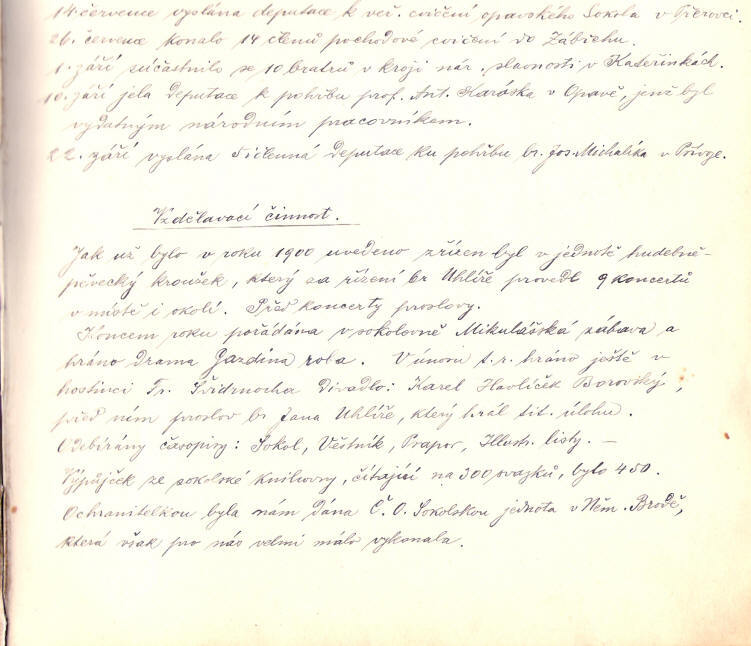 14. července vyslána deputace k veř. cvičení opavského Sokola v Přerovci.
26. července konalo 14 členů pochodové cvičení do Zábřehu.
1. září súčastnilo se 10 bratrů v kroji nár. slavnosti v Kateřinkách.
10. září jela deputace k pohřbu prof. Ant. Haráska v Opavě, jenž byl
vydatným národním pracovníkem.
22. září vyslána 5členná deputace ku pohřbu br. Jos. Michalíka v Přívoze.
Vzdělavací činnost.
Jak už bylo v roku 1900 uvedeno zřízen byl v jednotě hudebně-
pěvecký kroužek, který za řízení br Uhlíře provedl 9 koncertů
v místě i okolí. Před koncerty proslovy.
Koncem roku pořádána v sokolovně Mikulášská zábava a
hráno drama Gazdina roba. V únoru t. r. hráno ještě v
hostinci Fr. Divadlo: Karel Havlíček Borovský,
před ním proslov br Jana Uhlíře, který hrál tit. úlohu.
Odebírány časopisy: Sokol, Věstník, Prapor, Illustr. listy. —
Výpůjček ze sokolské knihovny, čítající na 300 svazků, bylo 450.
Ochranitelkou byla nám dána Č. O. Sokolskou jednota v Něm. Brodě,
která však pro nás velmi málo vykonala.